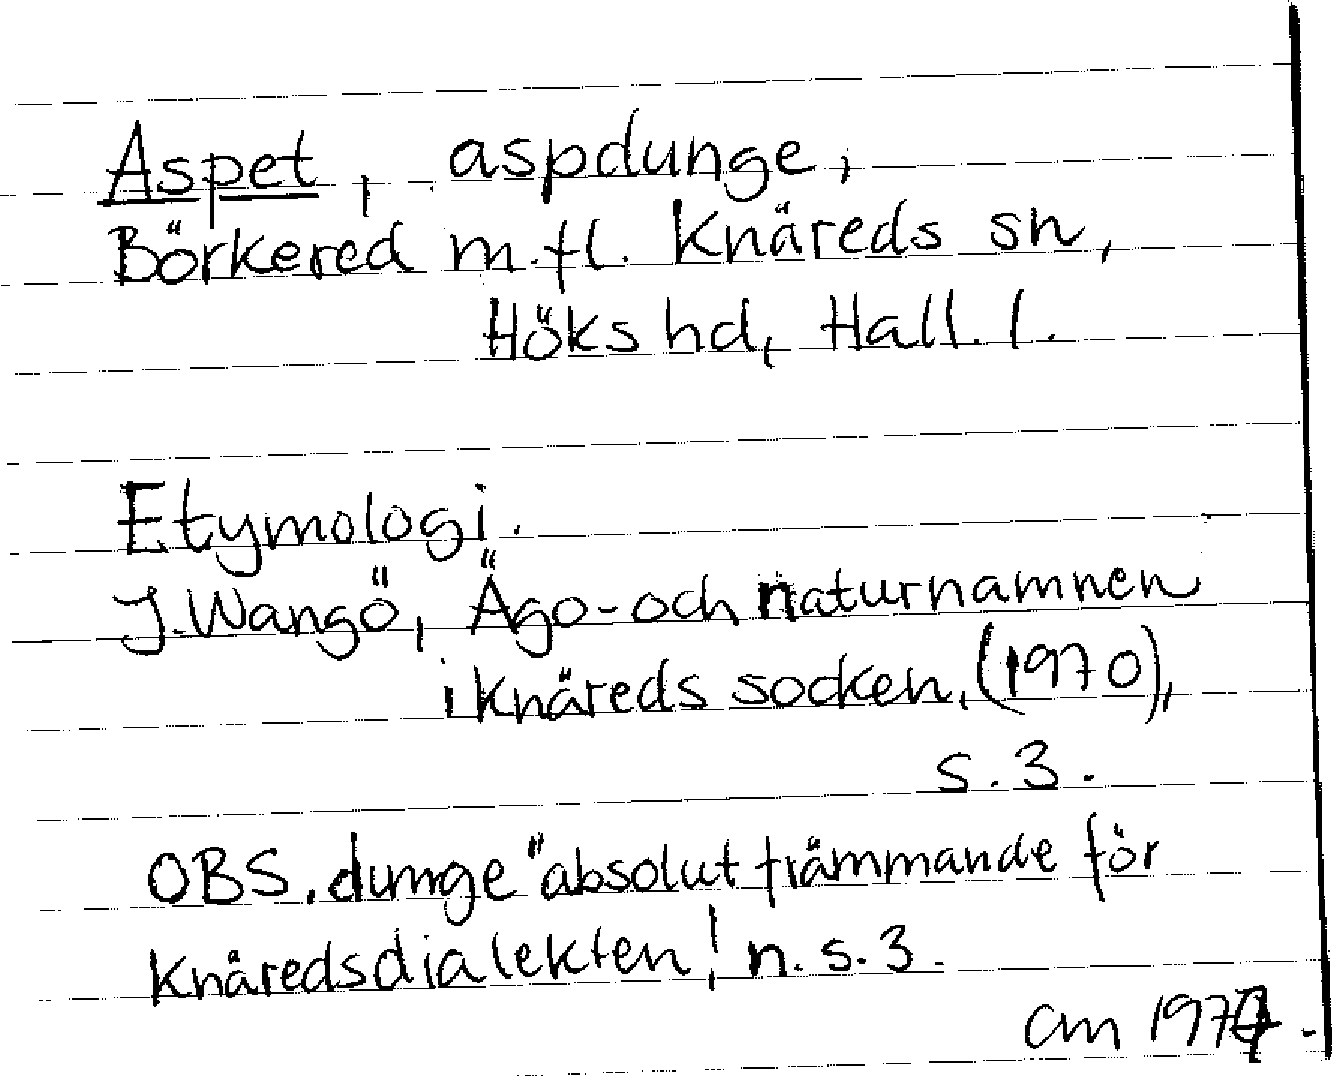 Aspet, aspdunge,
Börkered m.fl. Knäreds sn,
Höks hd, Hall. l.
Etymologi.
J. Wangö, Ägo- och naturnamnen
i Knäreds socken, (1970),
s. 3.
OBS. dunge "absolut främmande för
Knäredsdialekten! n. s. 3.
am